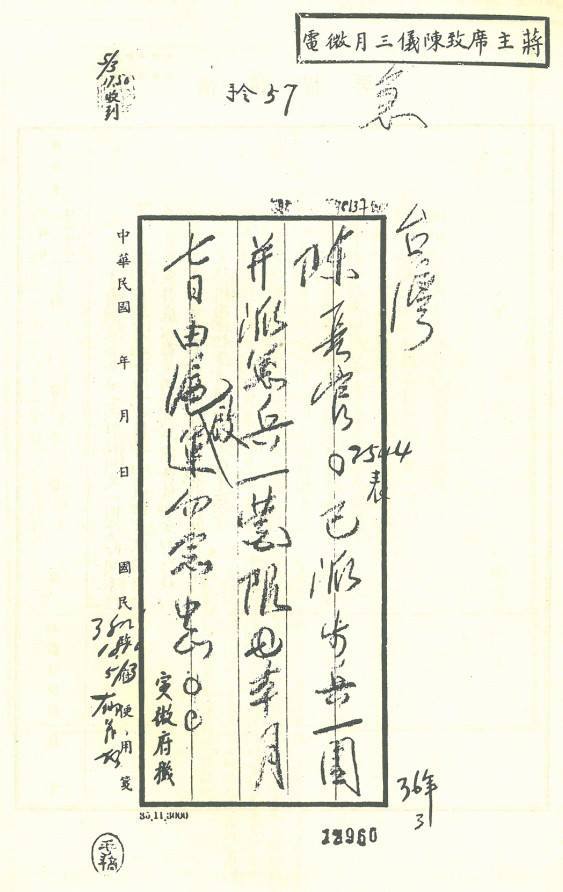 蔣主席致陳儀三月微電
急
手令 57
5/3
17.50
收到
台灣
陳長官○已派步兵一團
2544
表
并派憲兵一營限本月
七日由滬啟運勿念中正○○
寅微府機
中華民國 年 月 日 國民 用箋
35,11,3000
12960
36年
3